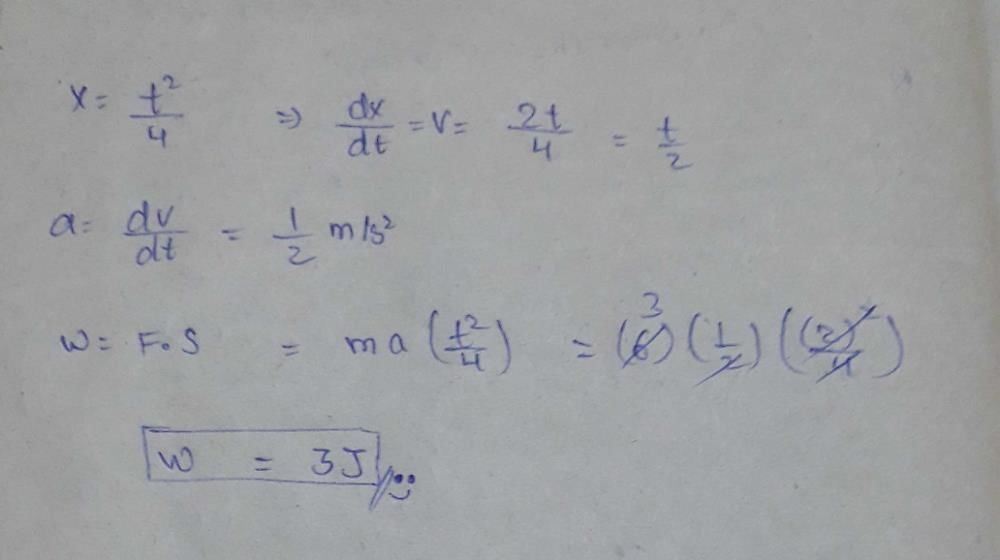 x = t²/4 ⇒ dx/dt = v = 2t/4 = t/2
a = dv/dt = 1/2 m/s²
W = F.S = ma (t²/4) = (6) 3 (1/2) ((2)²/4)
W = 3J